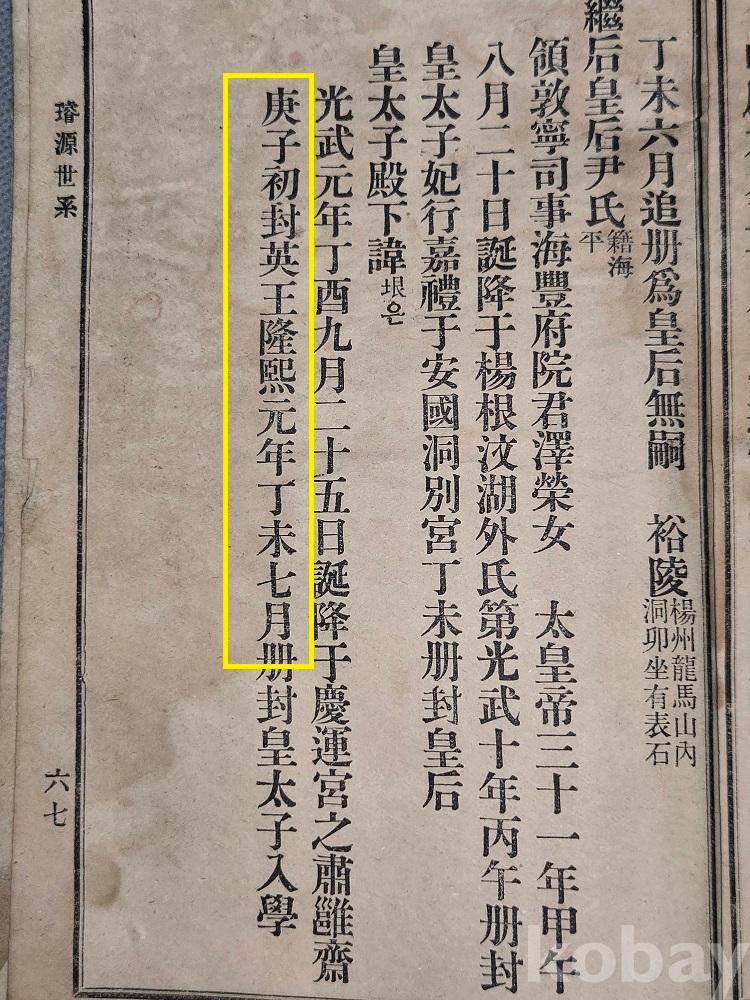 丁未六月追册爲皇后無嗣 裕陵楊州龍馬山內洞卯坐有表石
繼后皇后尹氏籍海平
領敦寧司事海豐府院君澤榮女 太皇帝三十一年甲午
八月二十日誕降于楊根汶湖外氏第光武十年丙午册封
皇太子妃行嘉禮于安國洞別宮丁未册封皇后
皇太子殿下諱垠은
光武元年丁酉九月二十五日誕降于慶運宮之肅雝齋
庚子初封英王隆熙元年丁未七月册封皇太子入學
璿源世系
六七
kobay